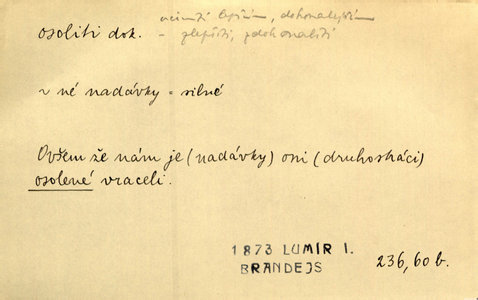 osoliti dok. učiniti lepším, dokonalejším
– zlepšiti, zdokonaliti
v né nadávky = silné
Ovšem že nám je (nadávky) oni (druhoškáci)
osolené vraceli.
1873 LUMÍR I.
BRANDEJS
236,60 b.